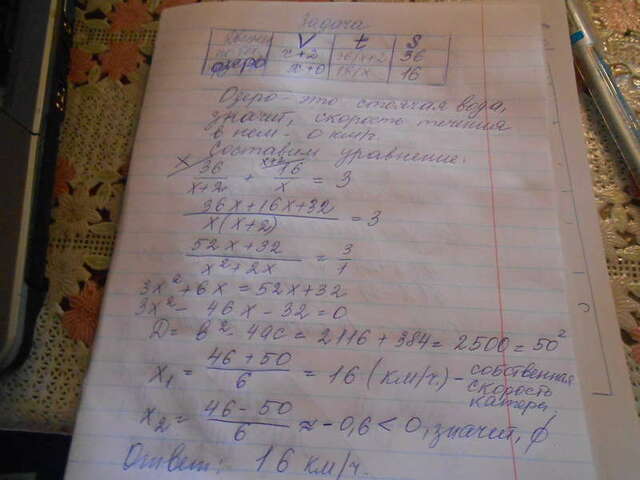 Задача
V t S
x+2 36/x+2 36
озеро x+0 16/x 16
Озеро - это стоячая вода,
значит, скорость течения
в нем - 0 км/ч.
Составим уравнение:
x x+2
36/x+2 + 16/x = 3
36x+16x+32/x(x+2) = 3
52x+32/x²+2x = 3/1
3x²+6x = 52x+32
3x²- 46x - 32 = 0
D = b²- 4ac = 2116 + 384 = 2500 = 50²
x₁ = 46+50/6 = 16 (км/ч) - собственная
скорость
катера,
x₂ = 46-50/6 ≈ -0,6 < 0, значит, ∅
Ответ: 16 км/ч.